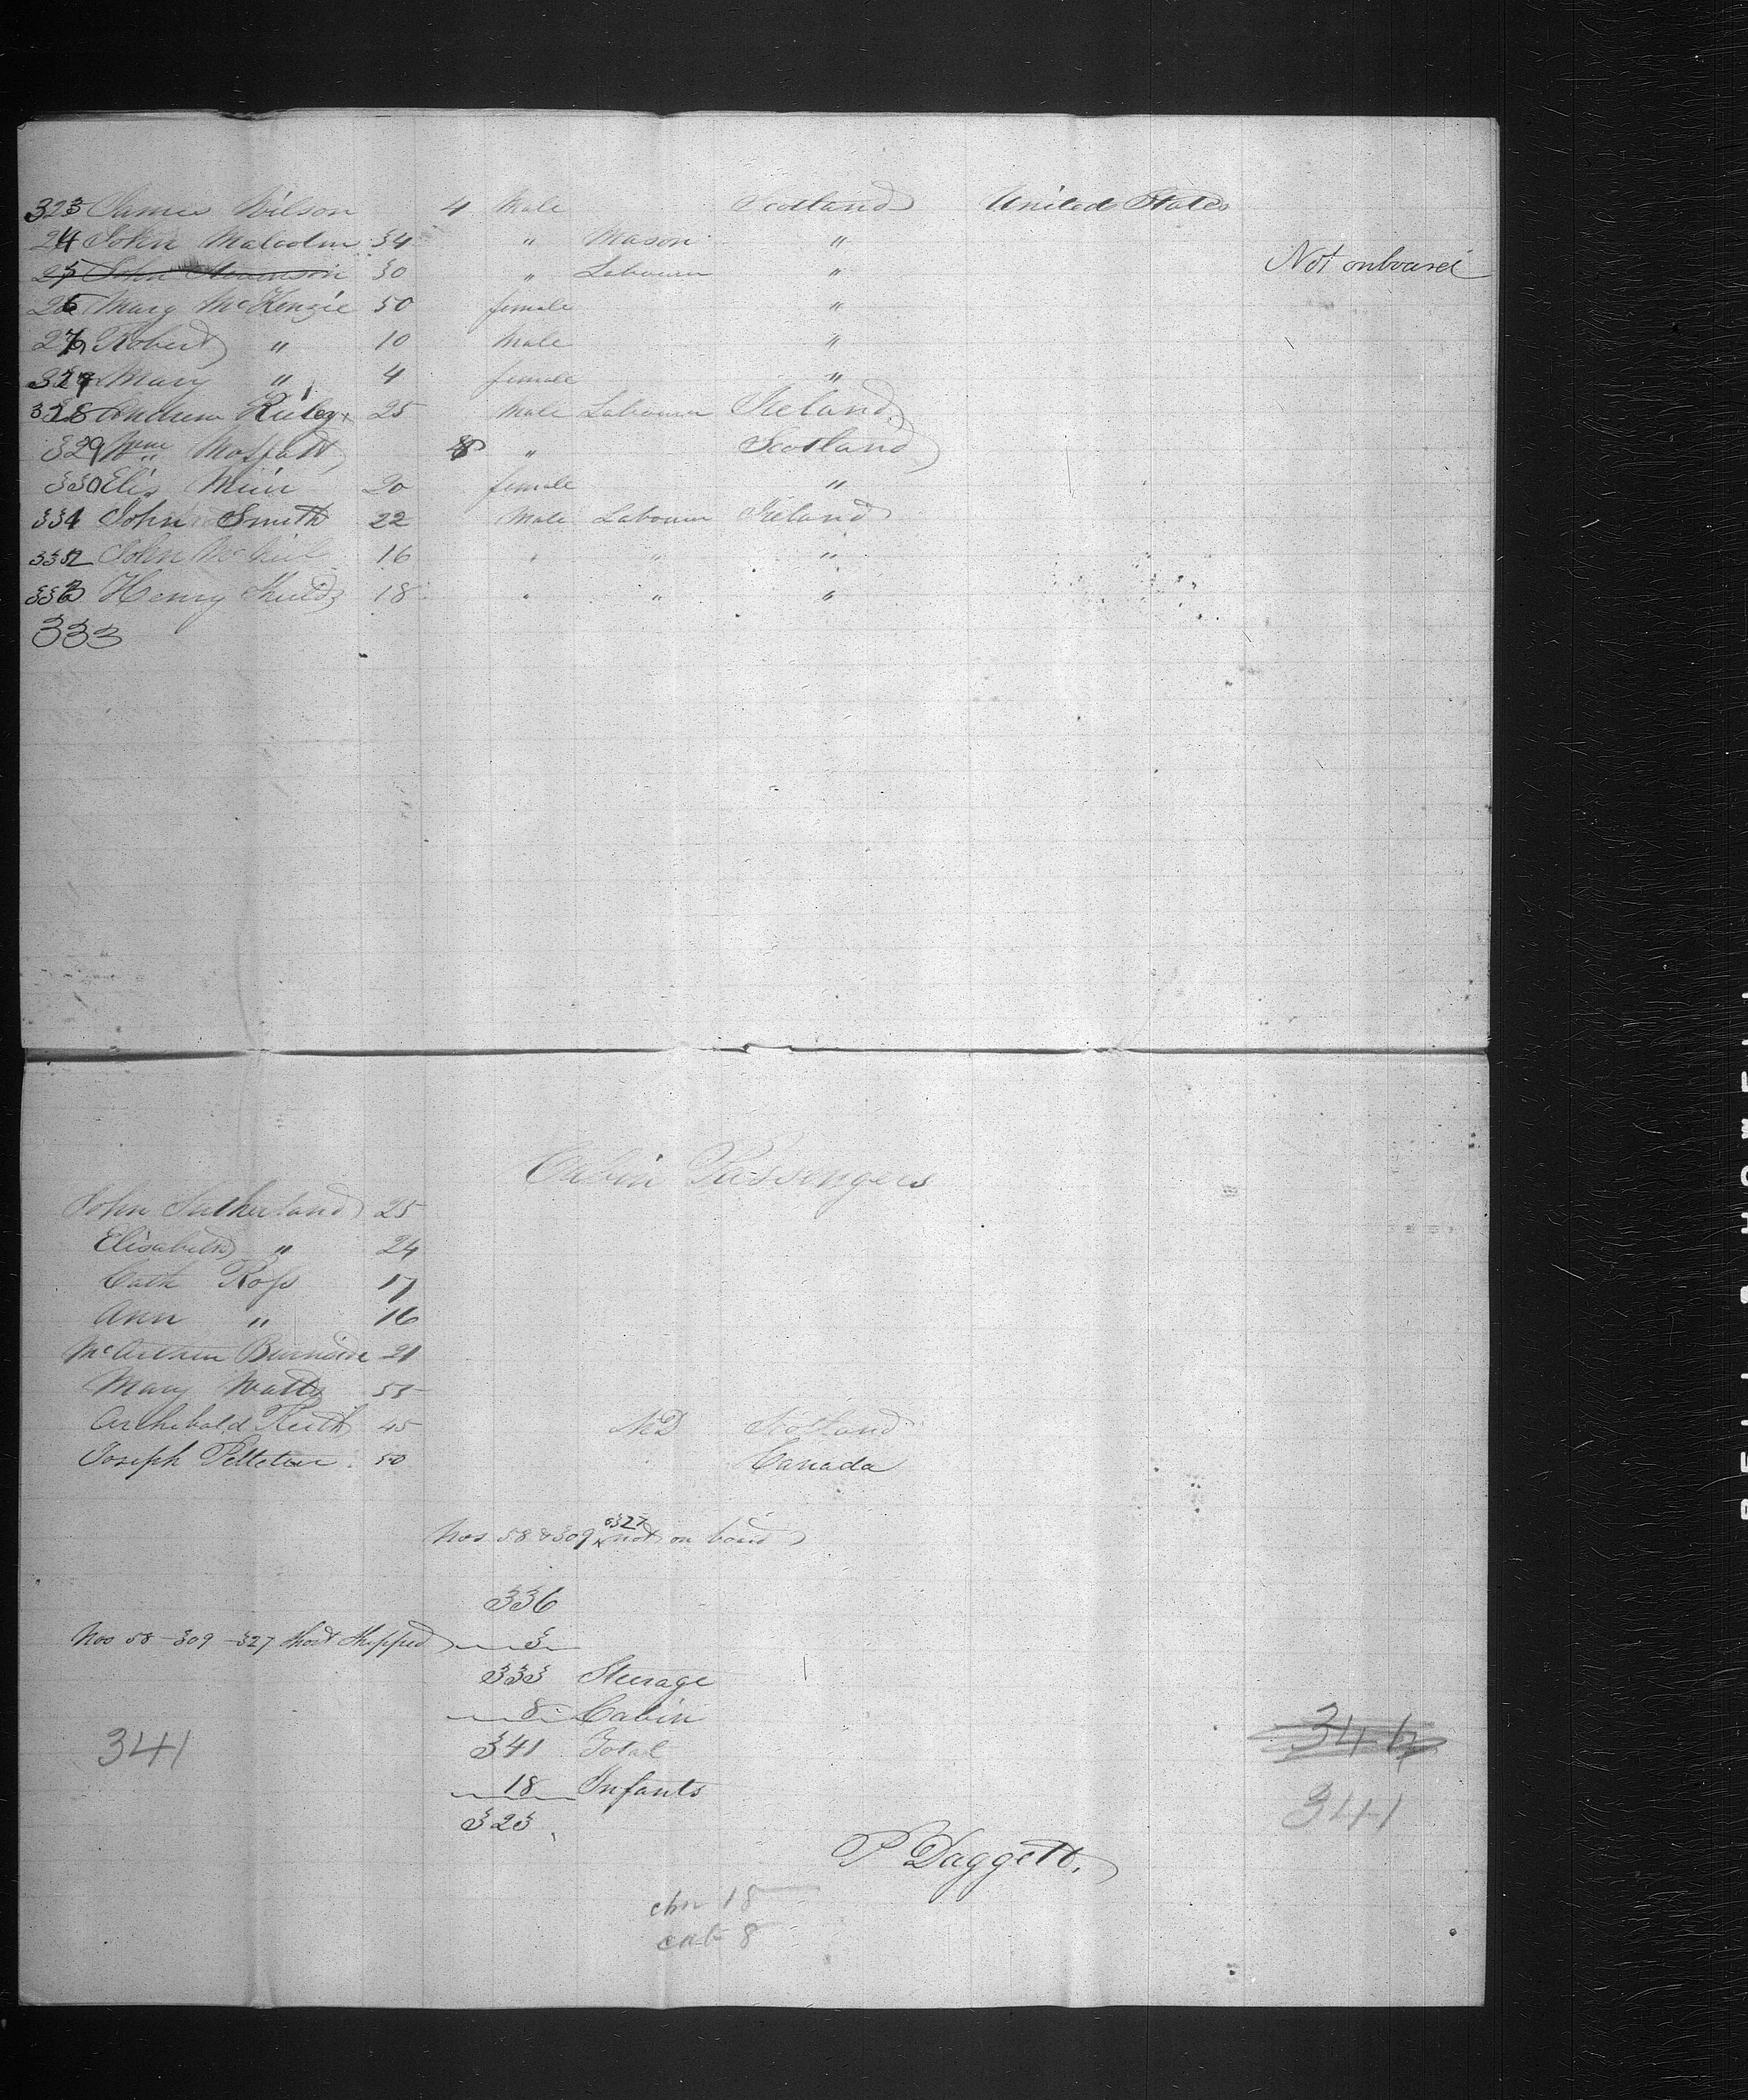 323 James Wilson 4 Male Scotland United States
24 John Malcolm 34 " Mason "
25 John Stevenson 30 " Labourer " Not onboard
26 Mary McKenzie 50 female "
27 Robert " 10 Male "
327 Mary " 4 female "
328 Andrew Riley 25 Male Labourer Ireland
329 Wm Moffatt 8 " Scotland
330 Elis Muir 20 female "
331 John Smith 22 Male Labourer Ireland
332 John 16 " " "
333 Henry 18 " " "
333
Cabin Passengers
John Sutherland 25
Elisabeth " 24
Cath Ross 17
Ann " 16
McArthur 21
Mary Watts 55
Archibald Keith 45 MD Scotland
Joseph Pelletier 50 Canada
Nos 58 & 309 & 327 not on board
336
Nos 58 - 309 - 327 Short Shipped 3
333 Steerage
8 Cabin
341 Total
18 Infants
323
341
344
341
P Daggett.
chn 18
cab 8